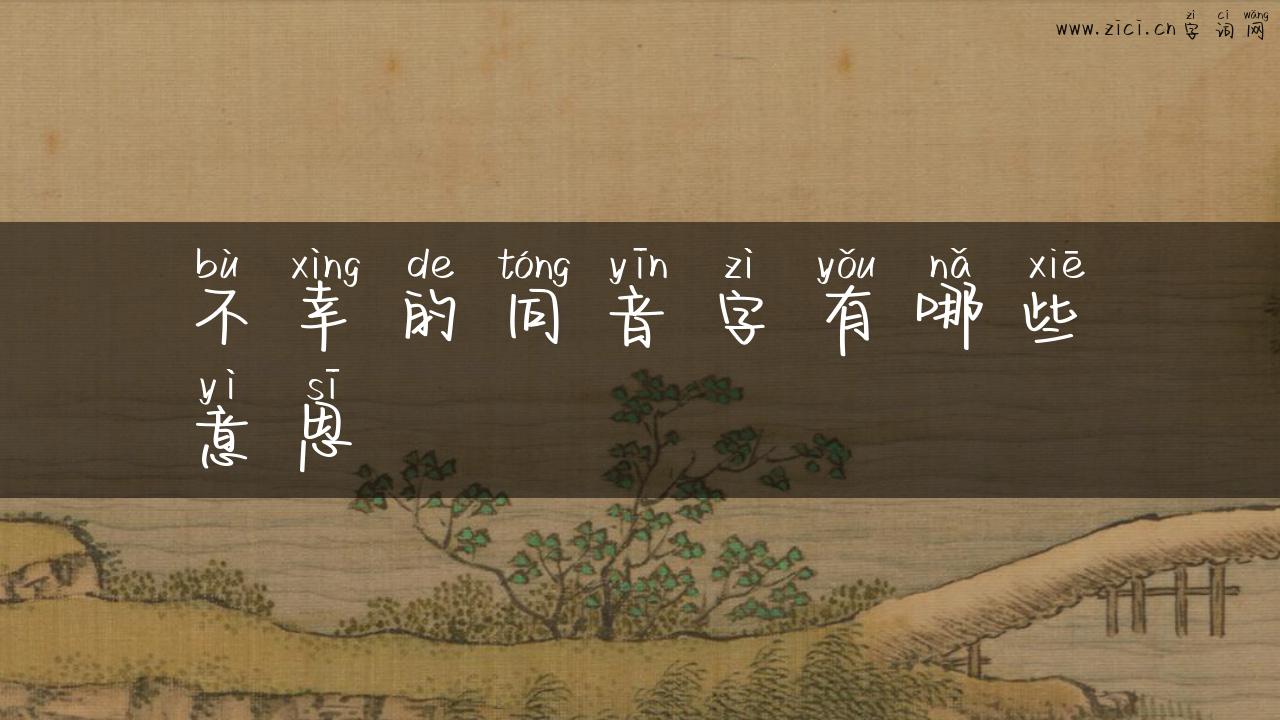 zì cí wǎng
www.zici.cn 字 词 网
bù xìng de tóng yīn zì yǒu nǎ xiē
不 幸 的 同 音 字 有 哪 些
yì sī
意 思